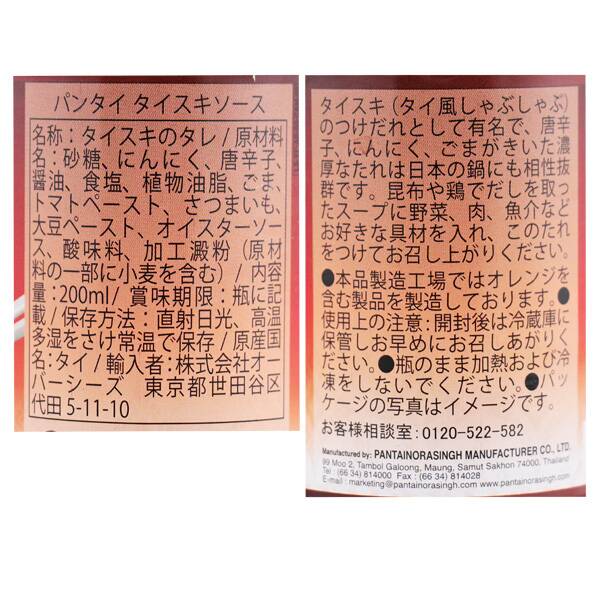 パンタイ タイスキソース
名称：タイスキのタレ / 原材料
名：砂糖、にんにく、唐辛子、
醤油、食塩、植物油脂、ごま、
トマトペースト、さつまいも、
大豆ペースト、オイスターソー
ス、酸味料、加工澱粉（原材
料の一部に小麦を含む）/ 内容
量：200ml / 賞味期限：瓶に記
載 / 保存方法：直射日光、高温
多湿をさけ常温で保存 / 原産国
名：タイ / 輸入者：株式会社オー
バーシーズ 東京都世田谷区
代田 5-11-10
タイスキ（タイ風しゃぶしゃぶ）
のつけだれとして有名で、唐辛
子、にんにく、ごまがきいた濃
厚なたれは日本の鍋にも相性抜
群です。昆布や鶏でだしを取っ
たスープに野菜、肉、魚介など
お好きな具材を入れ、このたれ
をつけてお召し上がりください。
●本品製造工場ではオレンジを
含む製品を製造しております。●
使用上の注意：開封後は冷蔵庫に
保管しお早めにお召しあがりく
ださい。●瓶のまま加熱および冷
凍をしないでください。●パッ
ケージの写真はイメージです。
お客様相談室：0120-522-582
Manufactured by: PANTAINORASINGH MANUFACTURER CO., LTD.
99 Moo 2, Tambol Galoong, Maung, Samut Sakhon 74000, Thailand
Tel : (66 34) 814000 Fax : (66 34) 814028
E-mail : marketing@pantainorasingh.com www.pantainorasingh.com